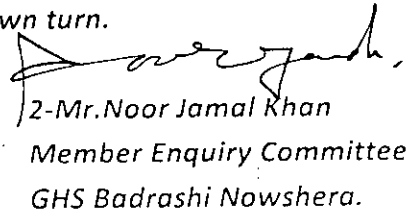 wn turn.
2-Mr.Noor Jamal Khan
Member Enquiry Committee
GHS Badrashi Nowshera.